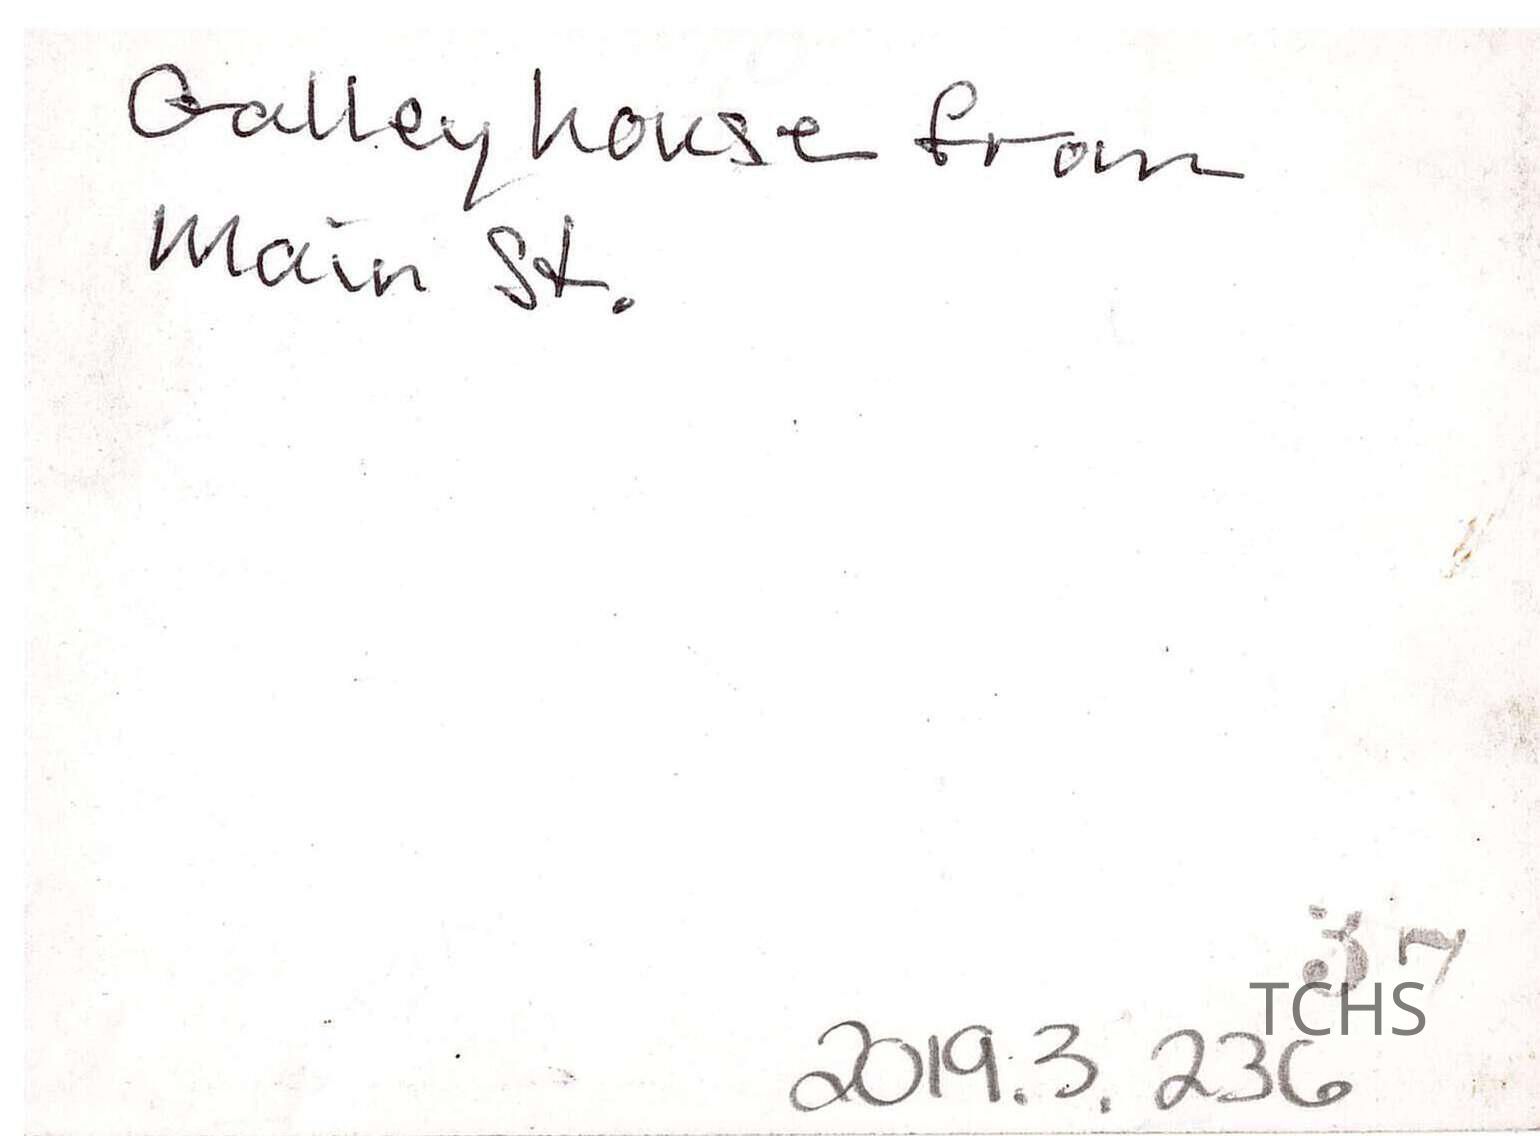 Galleyhouse from
Main St.
37
TCHS
2019.3.236